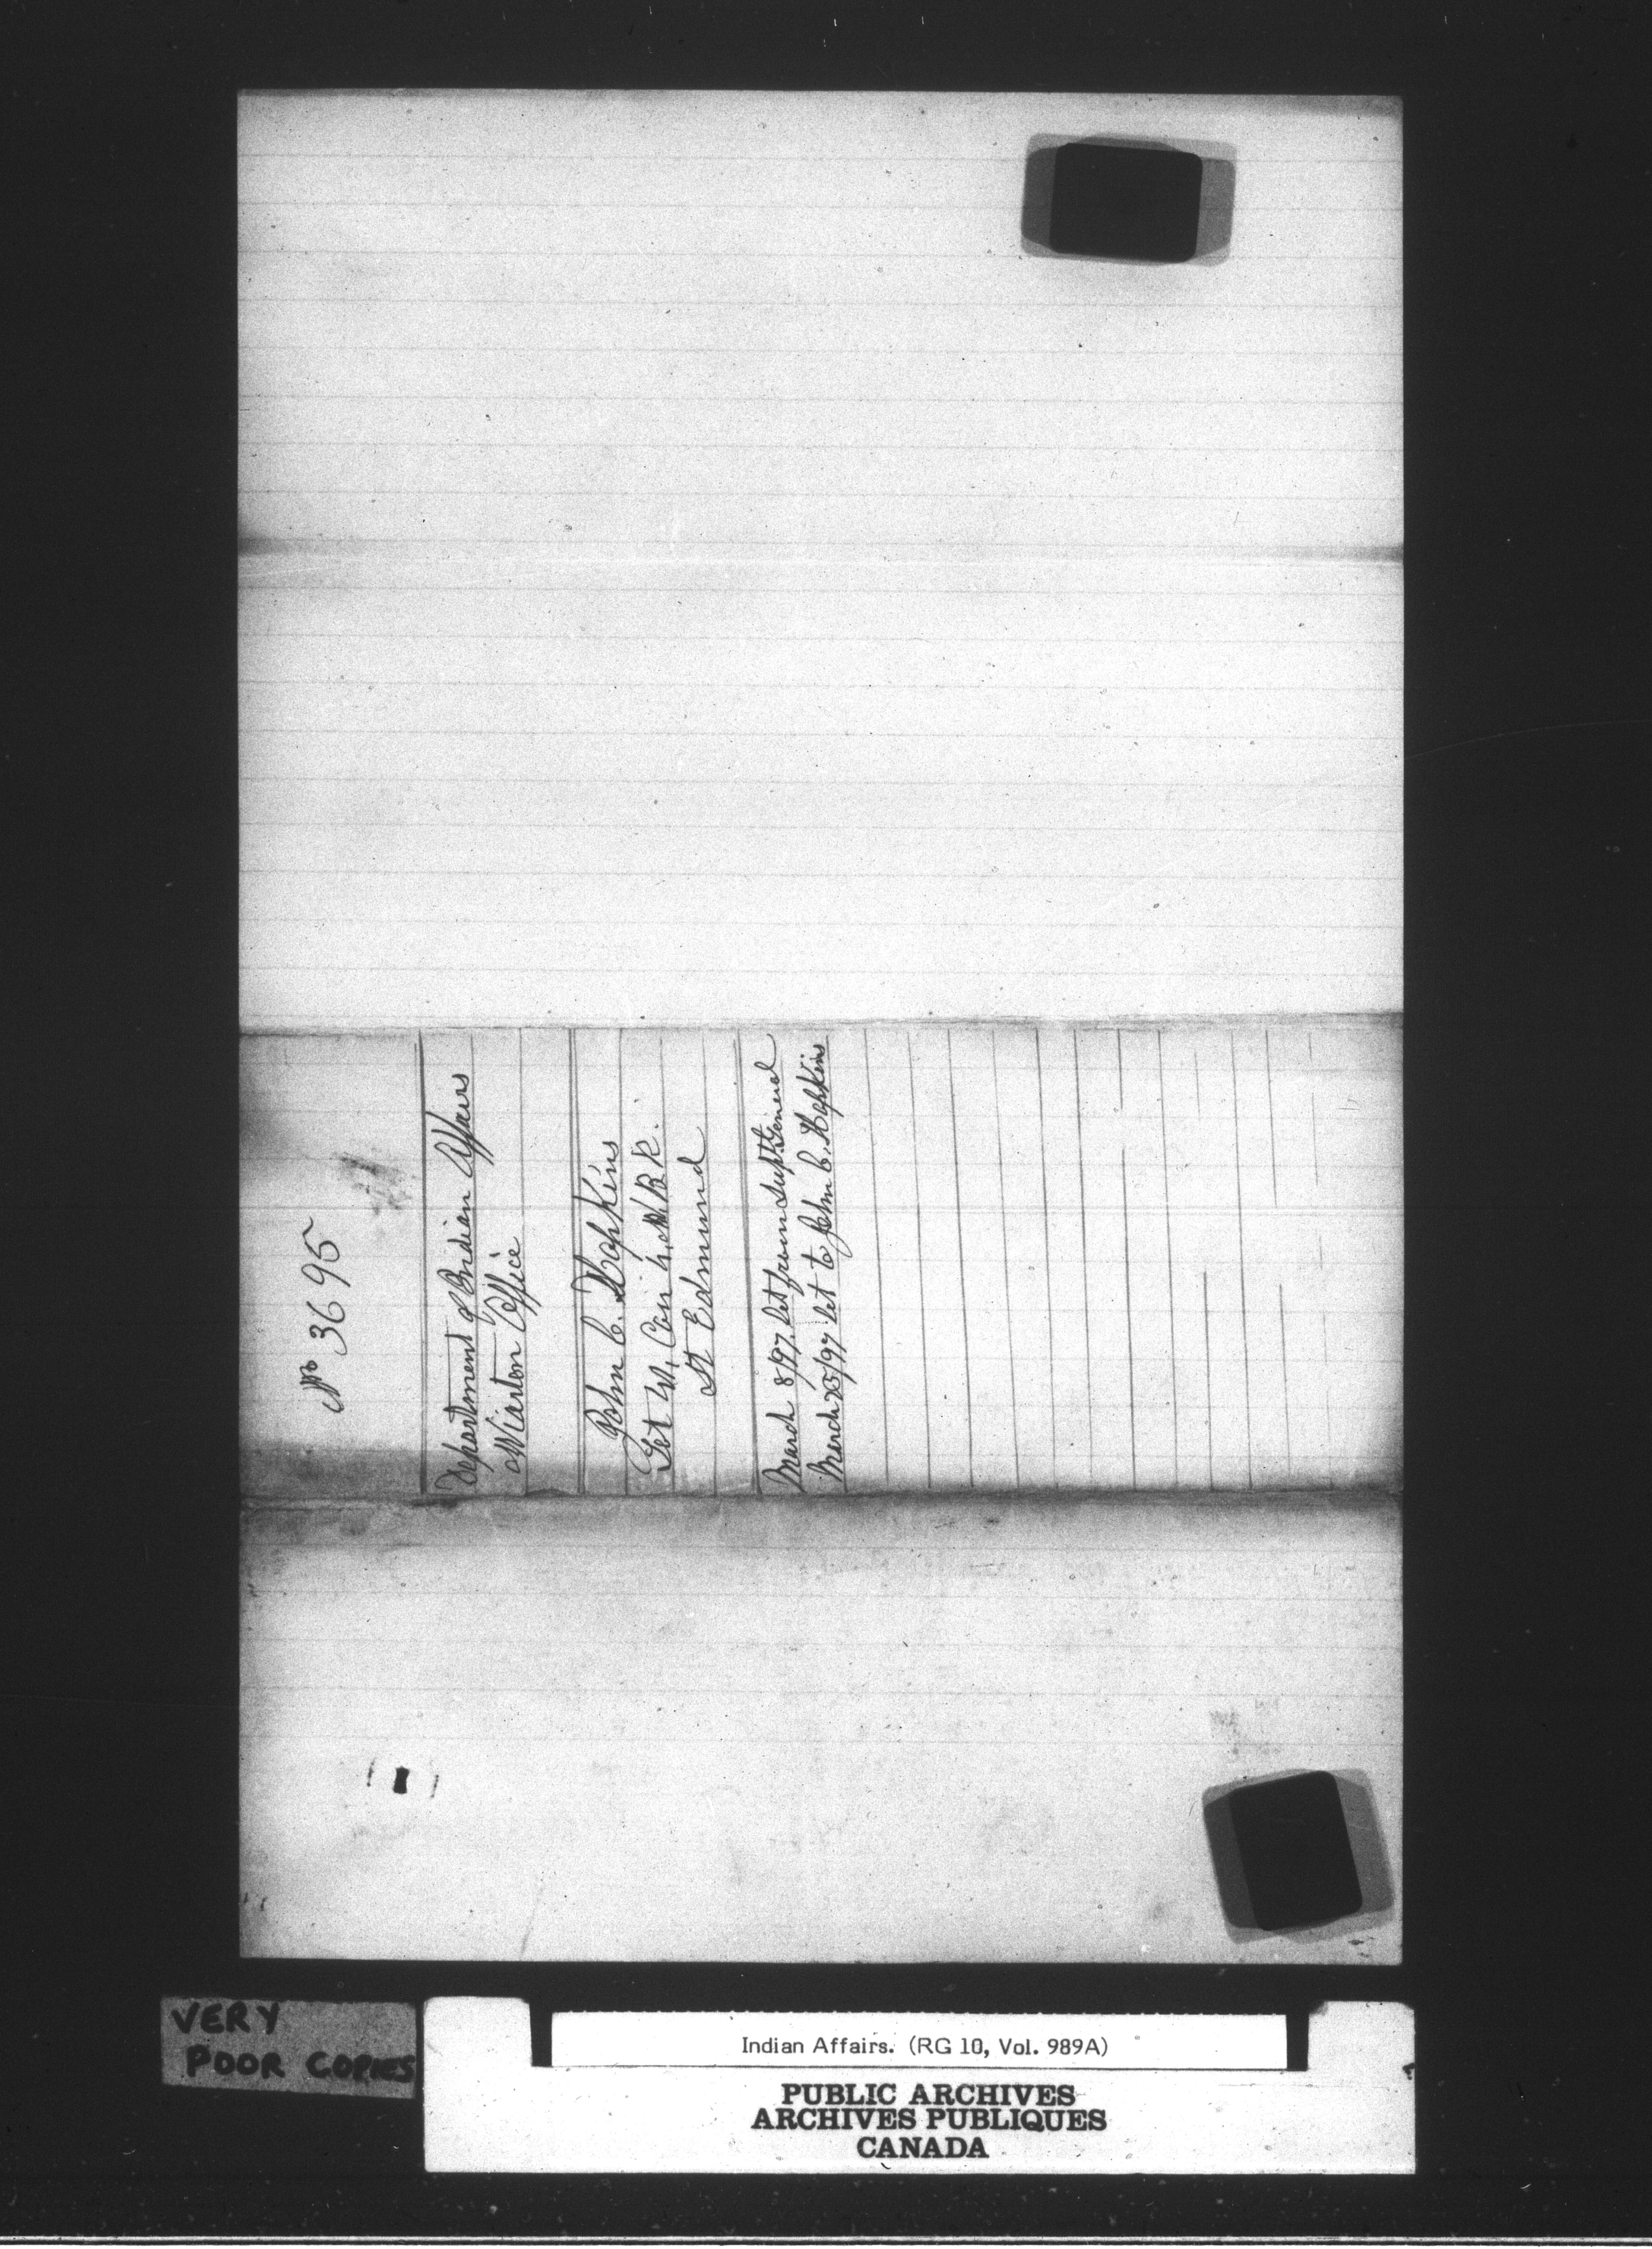 No 3695
Department of Indian Affairs
Wiarton Office
John C. Hopkins
Lot 41, Con 4, W.B.R.
St Edmund
March 8/97. let from Supt General
March 25/97 let to John C. Hopkins
VERY
POOR COPIES
Indian Affairs. (RG 10, Vol. 989A)
PUBLIC ARCHIVES
ARCHIVES PUBLIQUES
CANADA